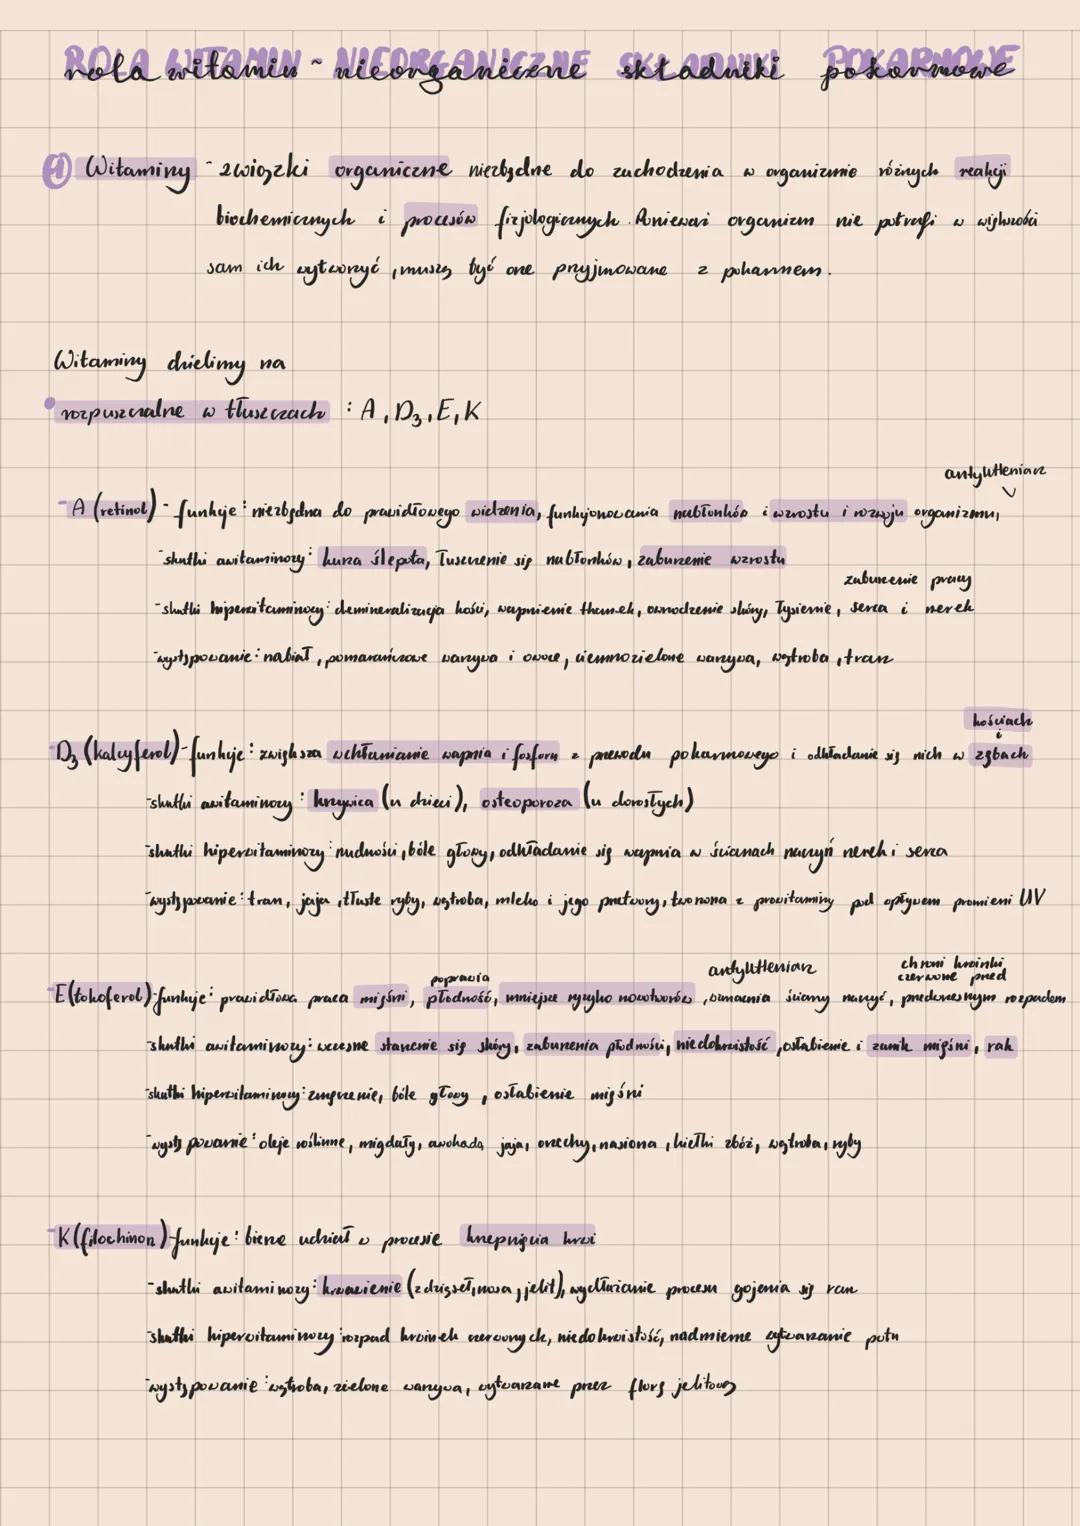 ROLA WITAMIN - NIEORGANICZNE SKŁADNIKI POKARMOWE
rola witamin ~ nieorganiczne składniki pokarmowe
1 Witaminy - związki organiczne niezbędne do zachodzenia w organizmie różnych reakcji
biochemicznych i procesów fizjologicznych. Ponieważ organizm nie potrafi w większości
sam ich wytworzyć, muszą być one przyjmowane z pokarmem.
Witaminy dzielimy na
rozpuszczalne w tłuszczach : A, D3, E, K
antyutleniacz
- A (retinol) - funkcje: niezbędna do prawidłowego widzenia, funkcjonowania nabłonków i wzrostu i rozwoju organizmu,
- skutki awitaminozy: kurza ślepota, łuszczenie się nabłonków, zaburzenie wzrostu
zaburzenie pracy
- skutki hiperwitaminozy: demineralizacja kości, wapnienie tkanek, owrzodzenie skóry, łysienie, serca i nerek
- występowanie: nabiał, pomarańczowe warzywa i owoce, ciemnozielone warzywa, wątroba, tran
kościach
i
- D3 (kalcyferol) - funkcje: zwiększa wchłanianie wapnia i fosforu z przewodu pokarmowego i odkładanie się nich w zębach
- skutki awitaminozy: krzywica (u dzieci), osteoporoza (u dorosłych)
- skutki hiperwitaminozy: nudności, bóle głowy, odkładanie się wapnia w ścianach naczyń nerek i serca
- występowanie: tran, jaja, tłuste ryby, wątroba, mleko i jego przetwory, tworzona z prowitaminy pod wpływem promieni UV
poprawia antyutleniacz chroni krwinki
czerwone przed
- E (tokoferol) - funkcje: prawidłowa praca mięśni, płodność, mniejsze ryzyko nowotworów, wzmacnia ściany naczyń, przedwczesnym rozpadem
- skutki awitaminozy: wczesne starzenie się skóry, zaburzenia płodności, niedokrwistość, osłabienie i zanik mięśni, rak
- skutki hiperwitaminozy: zmęczenie, bóle głowy, osłabienie mięśni
- występowanie: oleje roślinne, migdały, awokado, jaja, orzechy, nasiona, kiełki zbóż, wątroba, ryby
- K (filochinon) - funkcje: bierze udział w procesie krzepnięcia krwi
- skutki awitaminozy: krwawienie (z dziąseł, nosa, jelit), wydłużanie procesu gojenia się ran
- skutki hiperwitaminozy: rozpad krwinek czerwonych, niedokrwistość, nadmierne wytwarzanie potu
- występowanie: wątroba, zielone warzywa, wytwarzane przez florę jelitową